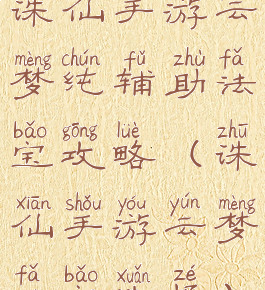 诛仙手游云
mèng chún fǔ zhù fǎ
梦纯辅助法
bǎo gōng lüè zhū
宝攻略（诛
xiān shǒu yóu yún mèng
仙手游云梦
fǎ bǎo xuǎn zé